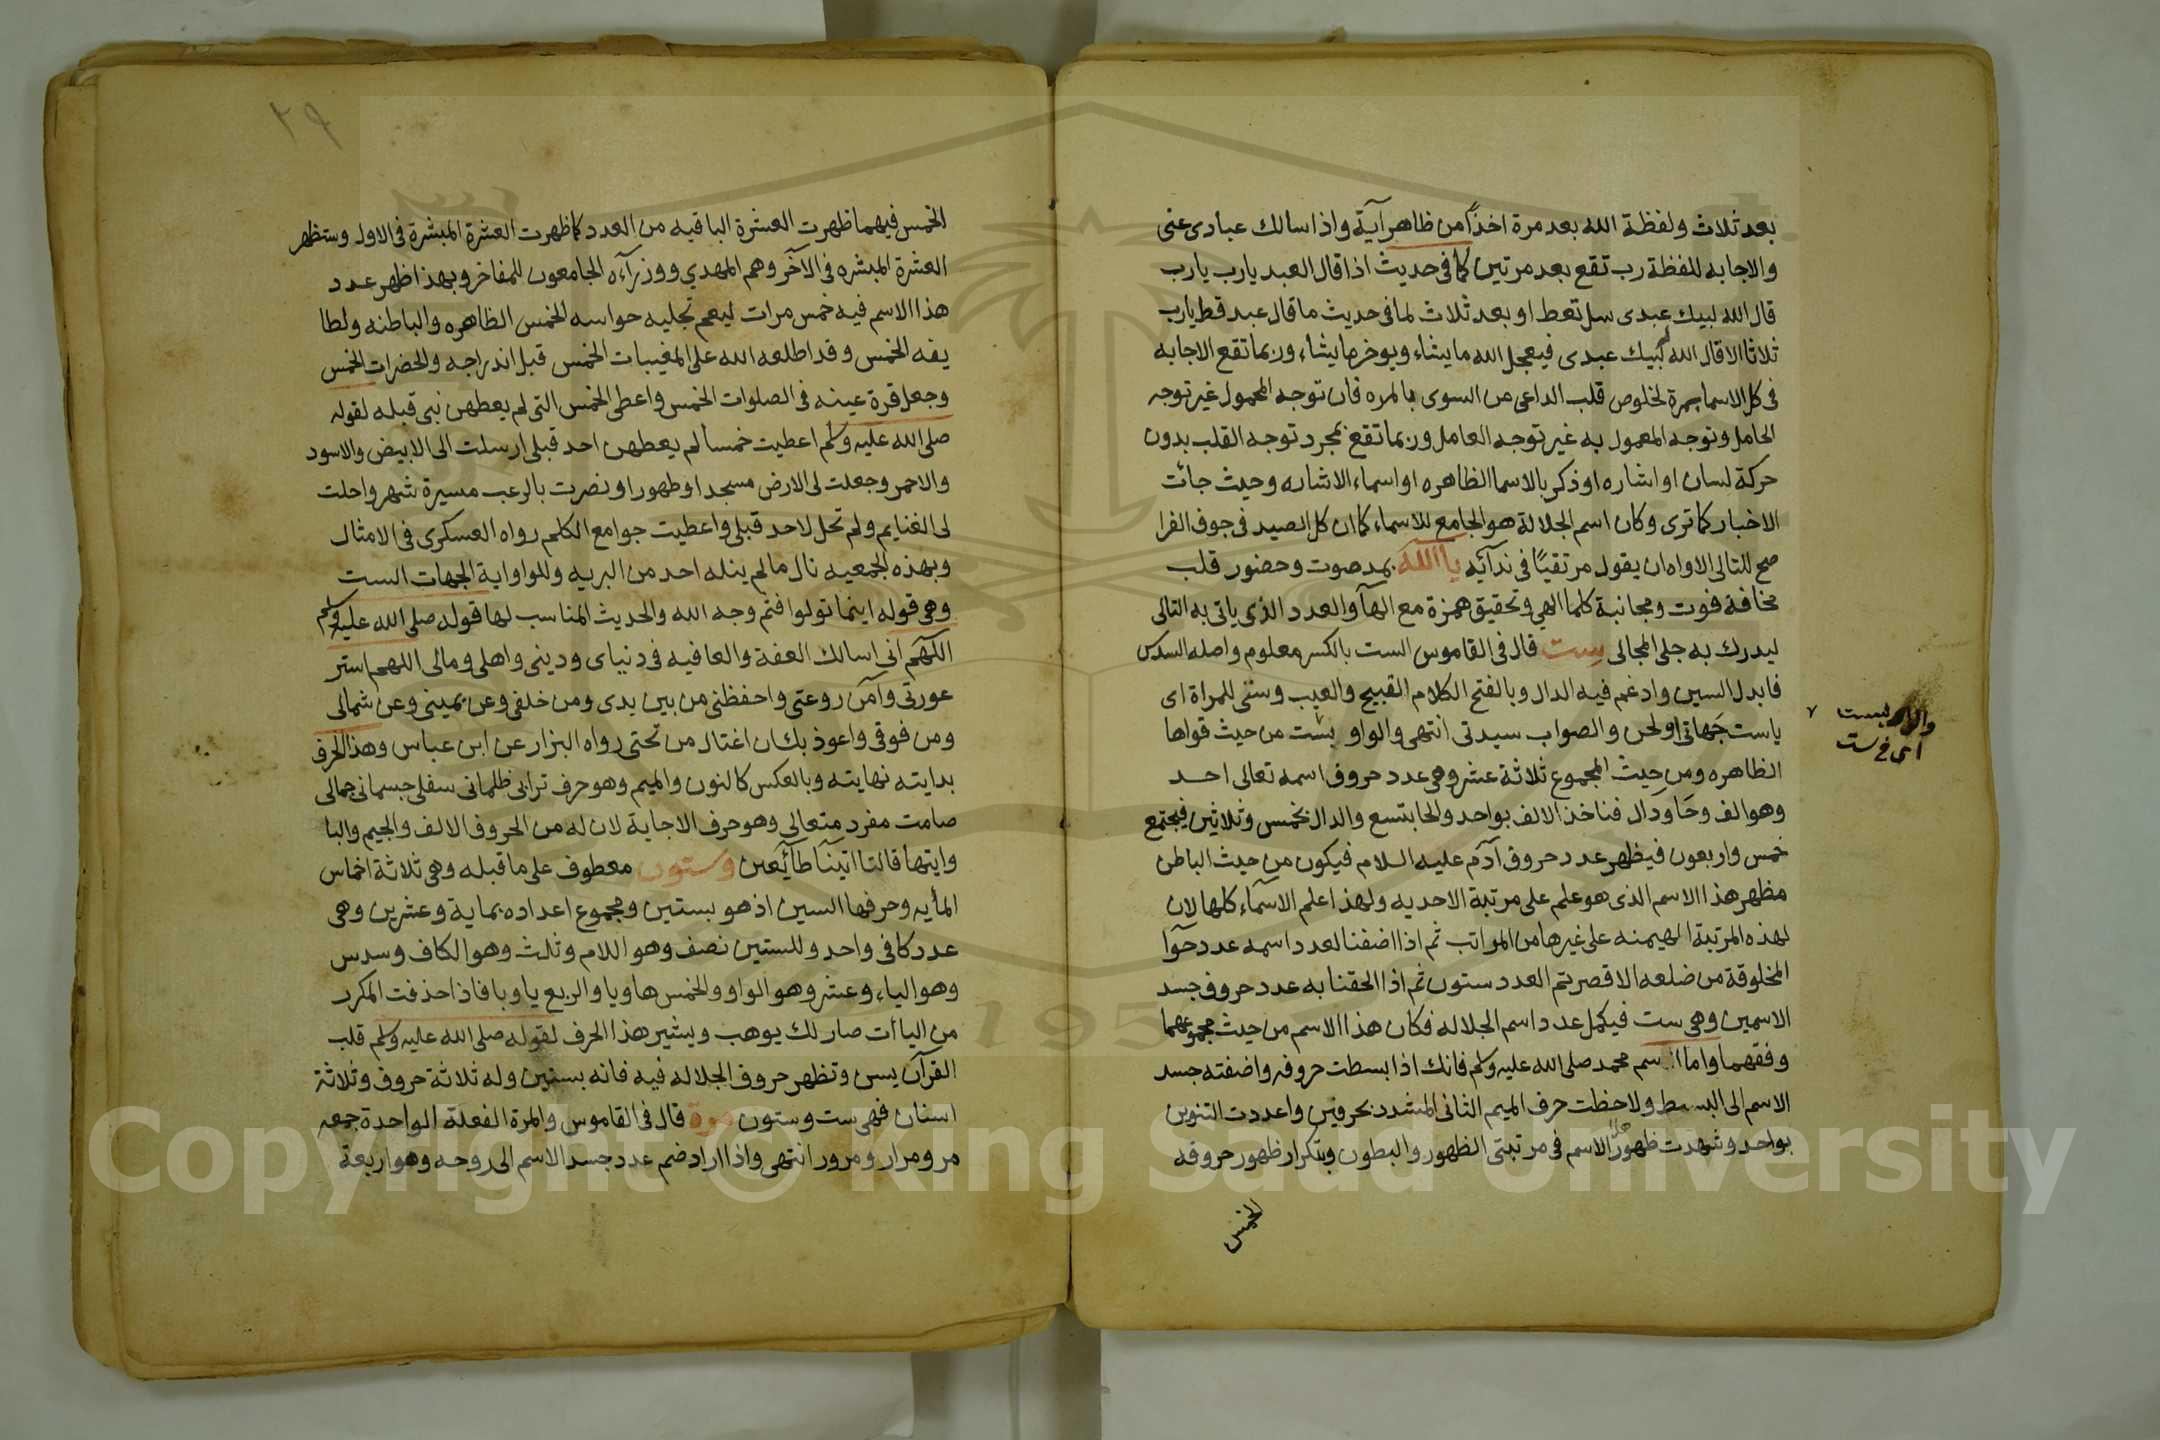 بعد ثلاث ولفظة الله بعد مرة اخذًا من ظاهر آية واذا سالك عبادى عنى
والاجابه للفظة رب تقع بعد مرتين كما فى حديث اذا قال العبد يارب يارب
قال الله لبيك عبدى سل تعط او بعد ثلاث لما فى حديث ما قال عبد قط يارب
ثلاثا الا قال الله لبيك عبدى فيعجل الله ما يشاء ويوخر ما يشاء وربما تقع الاجابه
فى كل الاسما بمرة لخلوص قلب الداعى من السوى بالمره فان توجه المحمول غير توجه
الحامل وتوجه المعمول به غير توجه العامل وربما تقع بمجرد توجه القلب بدون
حركة لسان او اشاره او ذكر بالاسما الظاهره او اسماء الاشاره وحيث جائت
الاخبار كما ترى وكان اسم الجلالة هو الجامع للاسماء كما ان كل الصيد فى جوف الفرا
صح للتالى الاواه ان يقول مرتقيًا فى ندآئه يا الله بمد صوت وحضور قلب
مخافة فوت ومجانبة كلما الهي وتحقيق همزة مع الهآ والعدد الذى ياتى به التالى
ليدرك به جلى المجالى ست قال فى القاموس الست بالكسر معلوم واصله السدس
فابدل السين وادغم فيه الدال وبالفتح الكلام القبيح والعيب وستى للمراة اى
ياست جهاتى او لحن والصواب سيدتى انتهى والواو بست من حيث قواها
الظاهره ومن حيث المجموع ثلاثة عشر وهى عدد حروف اسمه تعالى احد
وهو الف وحا ودال فناخذ الالف بواحد والحا بتسع والدال بخمس وثلاثين فيجتمع
خمس واربعون فيظهر عدد حروف آدم عليه السلام فيكون من حيث الباطن
مظهر هذا الاسم الذى هو علم على مرتبة الاحديه ولهذا علم الاسمآء كلها لان
لهذه المرتبة الهيمنه على غيرها من المراتب ثم اذا اضفنا لعدد اسمه عدد حوآ
المخلوقة من ضلعه الاقصر يتم العدد ستون ثم اذا الحقنا به عدد حروف جسد
الاسمين وهى ست فيكمل عدد اسم الجلاله فكان هذا الاسم من حيث مجموعهما
وفقهما واما اسم محمد صلى الله عليه وسلم فانك اذا بسطت حروفه واضفته جسد
الاسم الى البسط ولاحظت حرف الميم الثانى المشدد بحرفين واعددت التنوين
بواحد وشهدت ظهور الاسم فى مرتبتى الظهور والبطون وبتكرار ظهور حروفه
الخمس
والواو بست
اى فى ست
٢٩
الخمس فيهما ظهرت العشرة الباقيه من العدد كما ظهرت العشرة المبشرة فى الاول وستظهر
العشرة المبشره فى الآخر وهم المهدي ووزرآءه الجامعون للمفاخر وبهذا ظهر عدد
هذا الاسم فيه خمس مرات ليعم تجليه حواسه الخمس الظاهره والباطنه ولطا
يفه الخمس وقد اطلعه الله على المغيبات الخمس قبل اندراجه والحضرات الخمس
وجعل قرة عينه فى الصلوات الخمس واعطى الخمس التى لم يعطهن نبى قبله لقوله
صلى الله عليه وسلم اعطيت خمسا لم يعطهن احد قبلى ارسلت الى الابيض والاسود
والاحمر وجعلت لى الارض مسجدا وطهورا ونصرت بالرعب مسيرة شهر واحلت
لى الغنايم ولم تحل لاحد قبلى واعطيت جوامع الكلم رواه العسكرى فى الامثال
وبهذه الجمعيه نال ما لم ينله احد من البريه وللواو اية الجهات الست
وهى قوله اينما تولوا فثم وجه الله والحديث المناسب لها قوله صلى الله عليه وسلم
اللهم انى اسالك العفة والعافيه فى دنياى ودينى واهلى ومالى اللهم استر
عورتى وآمن روعتى واحفظنى من بين يدى ومن خلفى وعن يمينى وعن شمالى
ومن فوقى واعوذ بك ان اغتال من تحتى رواه البزار عن ابن عباس وهذا الحرف
بدايته نهايته وبالعكس كالنون والميم وهو حرف ترابى ظلمانى سفلى جسمانى جمالى
صامت مفرد متعالى وهو حرف الاجابة لان له من الحروف الالف والجيم والبا
وايتها قالتا اتينا طآئعين وستون معطوف على ما قبله وهى ثلاثة اخماس
المأيه وحرفها السين اذ هو بستين ومجموع اعداده بماية وعشرين وهى
عدد كافى واحد وللستين نصف وهو اللام وثلث وهو الكاف وسدس
وهو الياء وعشر وهو الواو والخمس ها ويا والربع يا وبا فاذا حذفت المكرر
من الياأت صار لك يوهب ويشير هذا الحرف لقوله صلى الله عليه وسلم قلب
القرآن يسن وتظهر حروف الجلاله فيه فانه بستين وله ثلاثة حروف وثلاثة
اسنان فهى ست وستون مرة قال فى القاموس والمرة الفعلة الواحدة جمعه
مر ومرار ومرور انتهى واذا اراد ضم عدد جسد الاسم الى روحه وهو اربعة
Copyright © King Saud University